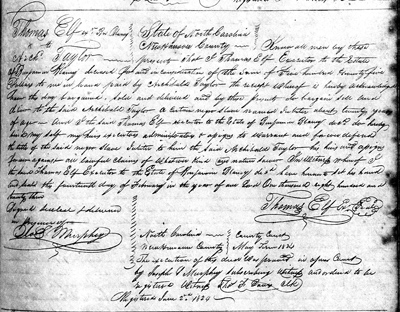 Thomas Elf Exr Ben Blaney
to
Archd Taylor
State of North Carolina
New Hanover County Know all men by these
presents that I Thomas Elf Executor to the Estate
of Benjamin Blaney deceased for and in consideration of the Sum of Five hundred twenty five
Dollars to me in hand paid by Archibald Taylor the receipt whereof is hereby acknowledged
have this day bargained, sold and delivered and by these presents do bargain sell and
deliver to the said Archibald Taylor a certain negro slave named
of age And I the said Thomas Elf executor to the Estate of Benjamin Blaney decd do here
by my self my heirs executors administrators & assigns to warrant and forever defend
the title of the said negro Slave to him the said Archibald Taylor his heirs and assigns
forever against all lawful claims of whatever kind and nature In Witness whereof I
the said Thomas Elf Executor to the Estate of Benjamin Blaney decd have hereunto set his hand
and seal the fourteenth day of February in the year of our Lord One thousand eight hundred and
twenty three
Signed sealed & delivered
in presence of
Jos S Murphey
Thomas Elf Exr Seal
North Carolina
New Hanover County
County Court
May Term 1824
The execution of this deed Was proved in open Court
by Joseph S Murphey subscribing witness and ordered to be
registered Witness Thos F Davis Clk
Registered June 2nd 1824